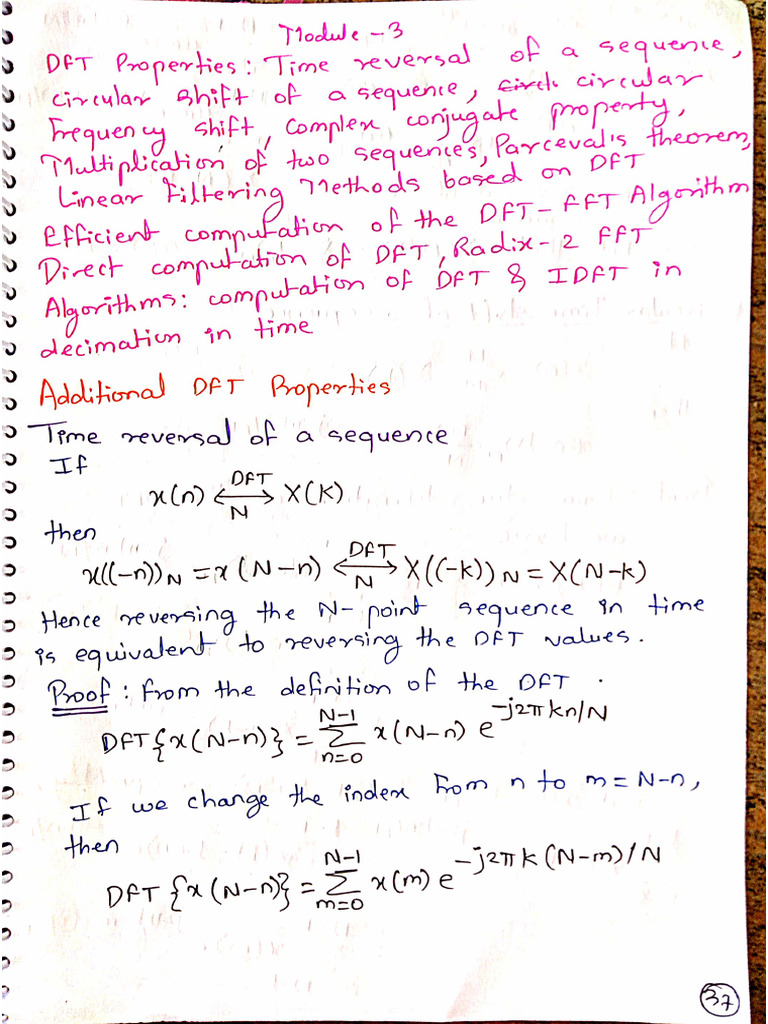 Module-3
DFT Properties: Time reversal of a sequence,
circular shift of a sequence, circl circular
frequency shift, complex conjugate property,
Multiplication of two sequences, Parceval's theorem,
Linear Filtering Methods based on DFT
Efficient computation of the DFT-FFT Algorithm
Direct computation of DFT, Radix-2 FFT
Algorithms: computation of DFT & IDFT in
decimation in time
Additional DFT Properties
Time reversal of a sequence
If
x(n) ⟷ X(k) DFT N
then
x((-n))N = x(N-n) ⟷ X((-k))N = X(N-k) DFT N
Hence reversing the N-point sequence in time
is equivalent to reversing the DFT values.
Proof: From the definition of the DFT.
DFT{x(N-n)} = Σ_{n=0}^{N-1} x(N-n) e^{-j2πkn/N}
If we change the index from n to m=N-n,
then
DFT{x(N-n)} = Σ_{m=0}^{N-1} x(m) e^{-j2πk(N-m)/N}
37